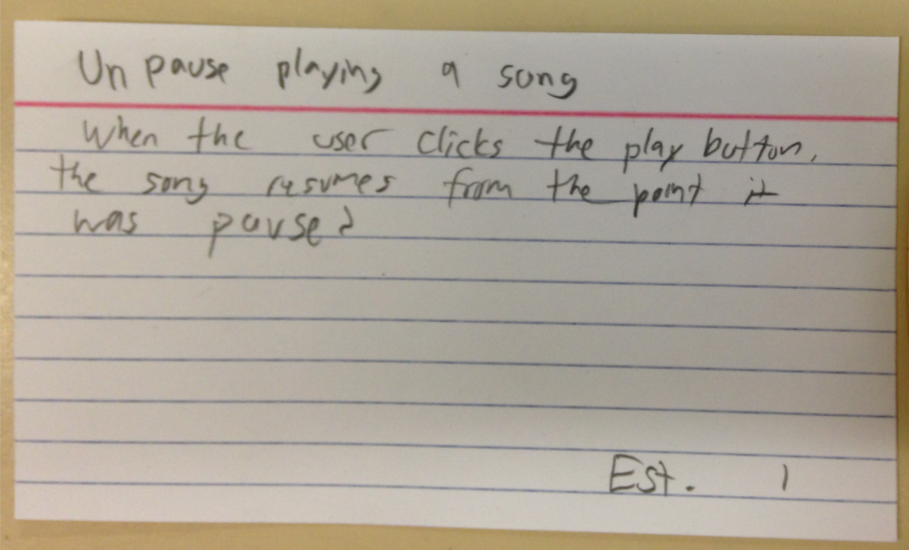 Unpause playing a song
When the user clicks the play button,
the song resumes from the point it
was paused
Est. 1